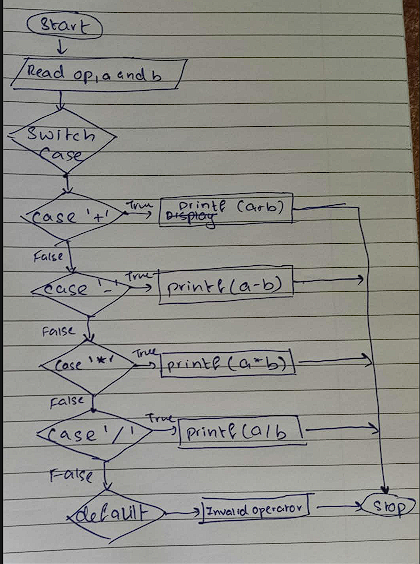 Start
Read op, a and b
Switch
Case
case '+'
True
printf (a+b)
Display
False
case '-'
True
printf (a-b)
False
case '*'
True
printf (a*b)
False
case '/'
True
printf (a/b
False
default
Invalid operator
stop